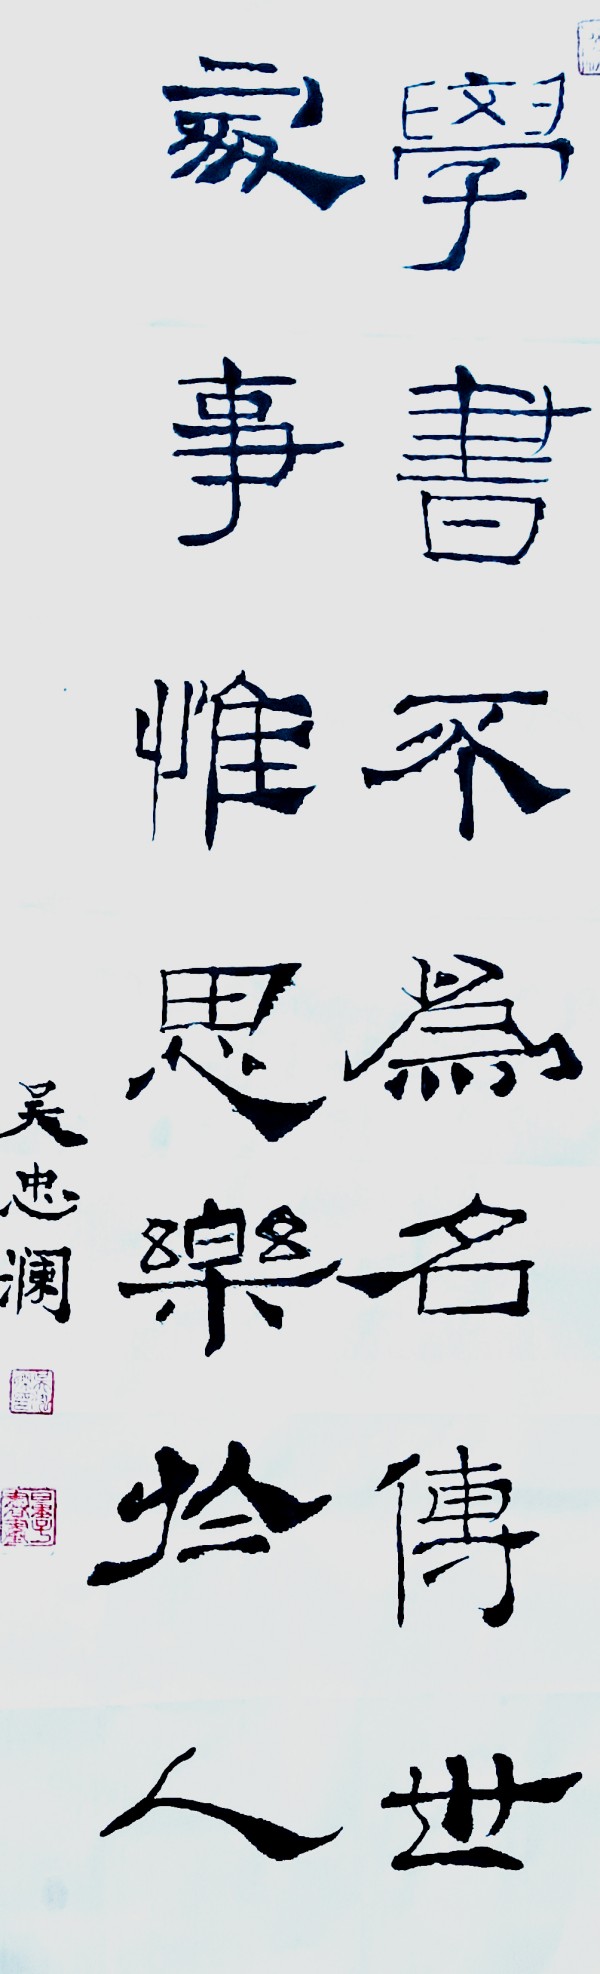 學書不爲名傳世
事惟思樂於人
吴忠澜